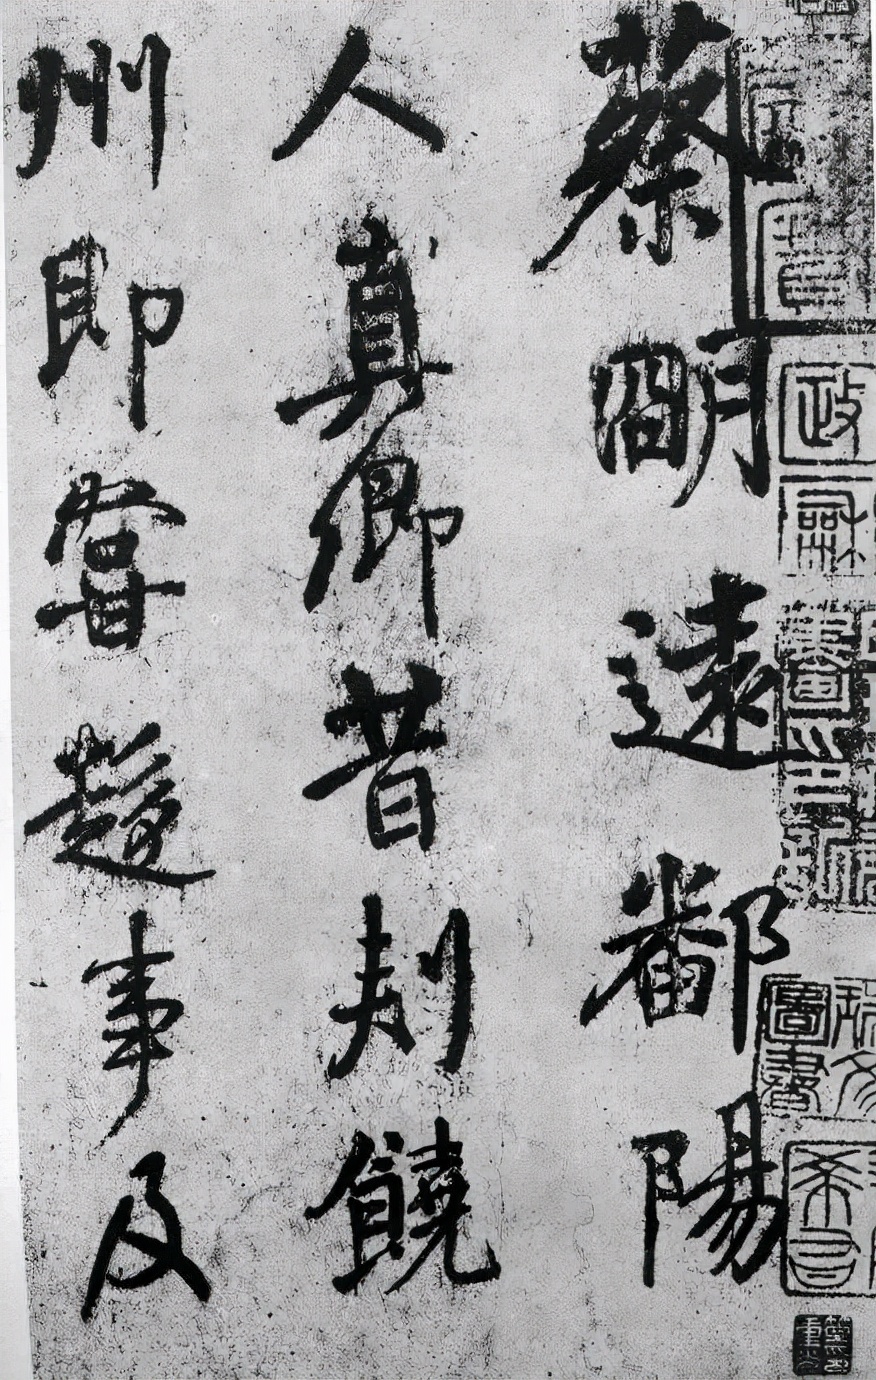 蔡明遠鄱陽
人真卿昔刾饒
州即嘗趍事及